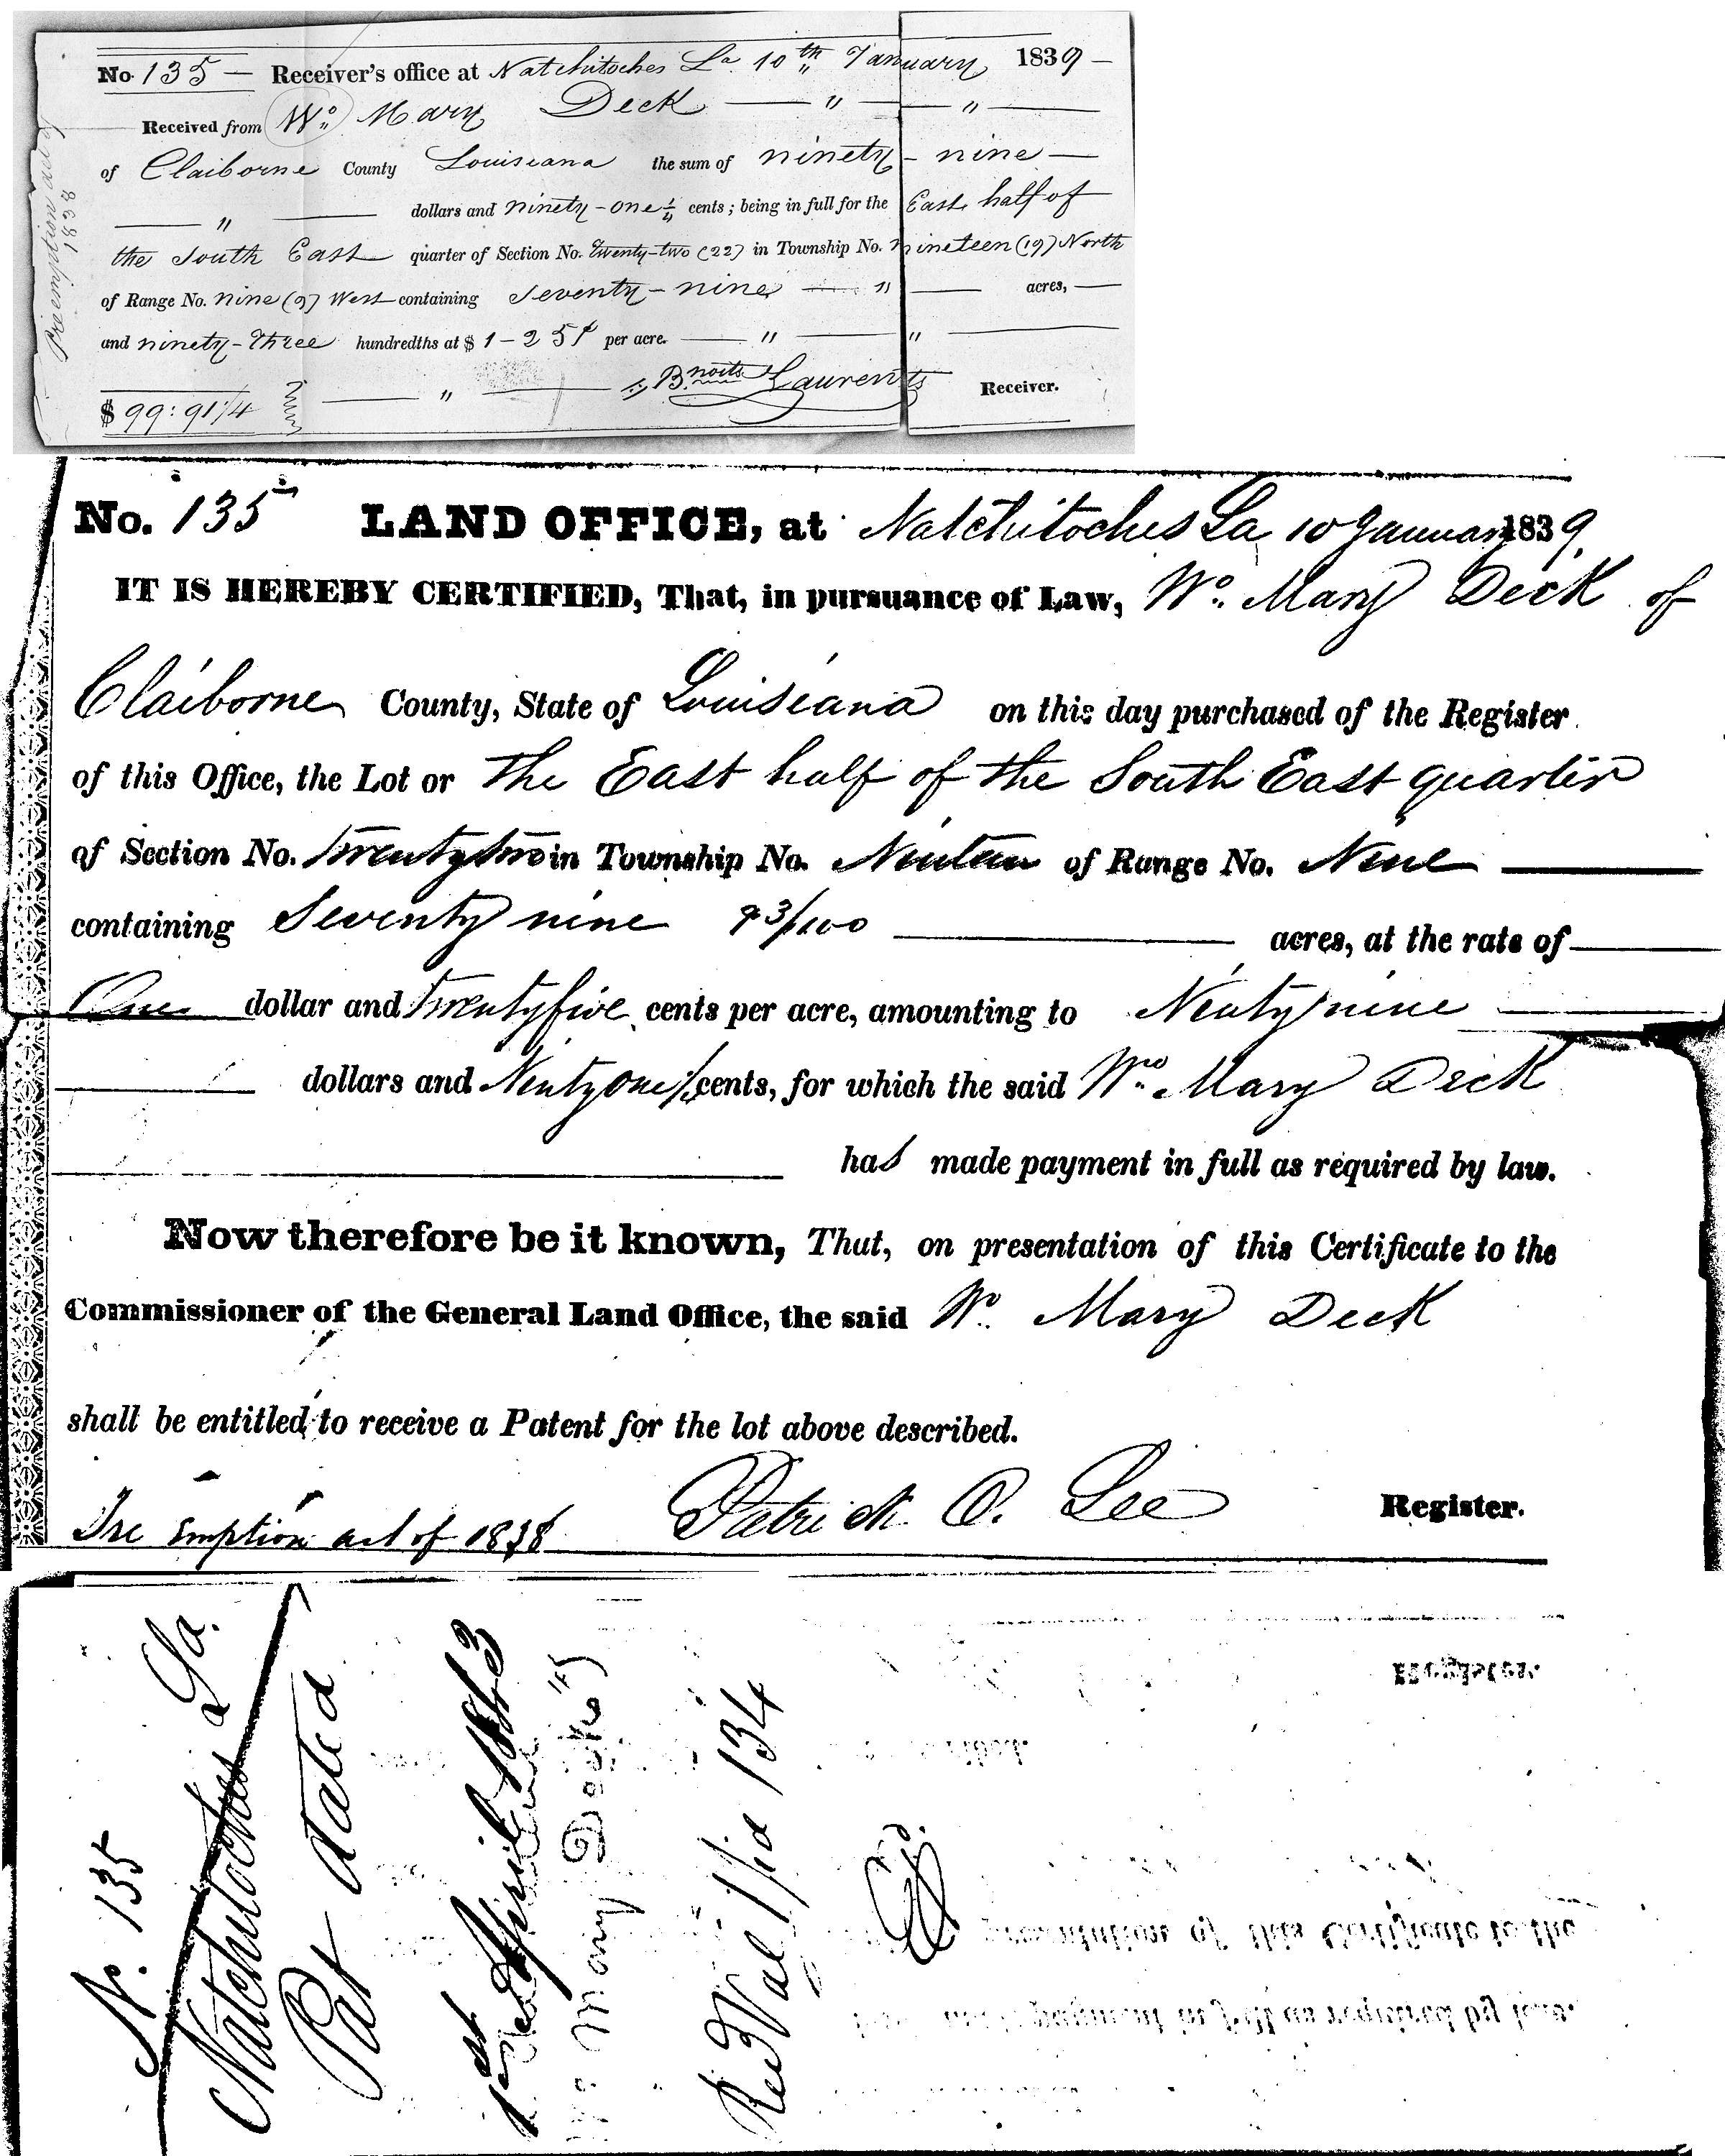 No. 135 — Receiver's office at Natchitoches La. 10th January 1839 —
Received from Wo. Mary Deck — " — — " —
of Claiborne County Louisiana the sum of ninety - nine —
— " — dollars and ninety-one 1/4 cents; being in full for the East half of
the South East quarter of Section No. twenty-two (22) in Township No. nineteen (19) North
of Range No. nine (9) West containing seventy-nine — " — acres, —
and ninety-three hundredths at $ 1-25¢ per acre. — " — " —
$ 99:91 1/4 — " — Bnoits Laurents Receiver.
Preemption act of
1838
No. 135 LAND OFFICE, at Natchitoches La 10 January 1839.
IT IS HEREBY CERTIFIED, That, in pursuance of Law, Wo. Mary Deck of
Claiborne County, State of Louisiana on this day purchased of the Register
of this Office, the Lot or the East half of the South East quarter
of Section No. twenty two in Township No. Ninteen of Range No. Nine
containing Seventy nine 93/100 acres, at the rate of
One dollar and twenty five cents per acre, amounting to Ninty nine
dollars and Nintyone 1/4 cents, for which the said Wo. Mary Deck
has made payment in full as required by law.
Now therefore be it known, That, on presentation of this Certificate to the
Commissioner of the General Land Office, the said Wo. Mary Deck
shall be entitled to receive a Patent for the lot above described.
Pre Emption act of 1838 Patrick O. Lee Register.
N. 135
Natchitoches La.
Pat dated
1st April 1843
Mary Deck
Rec Vol 1/id 134